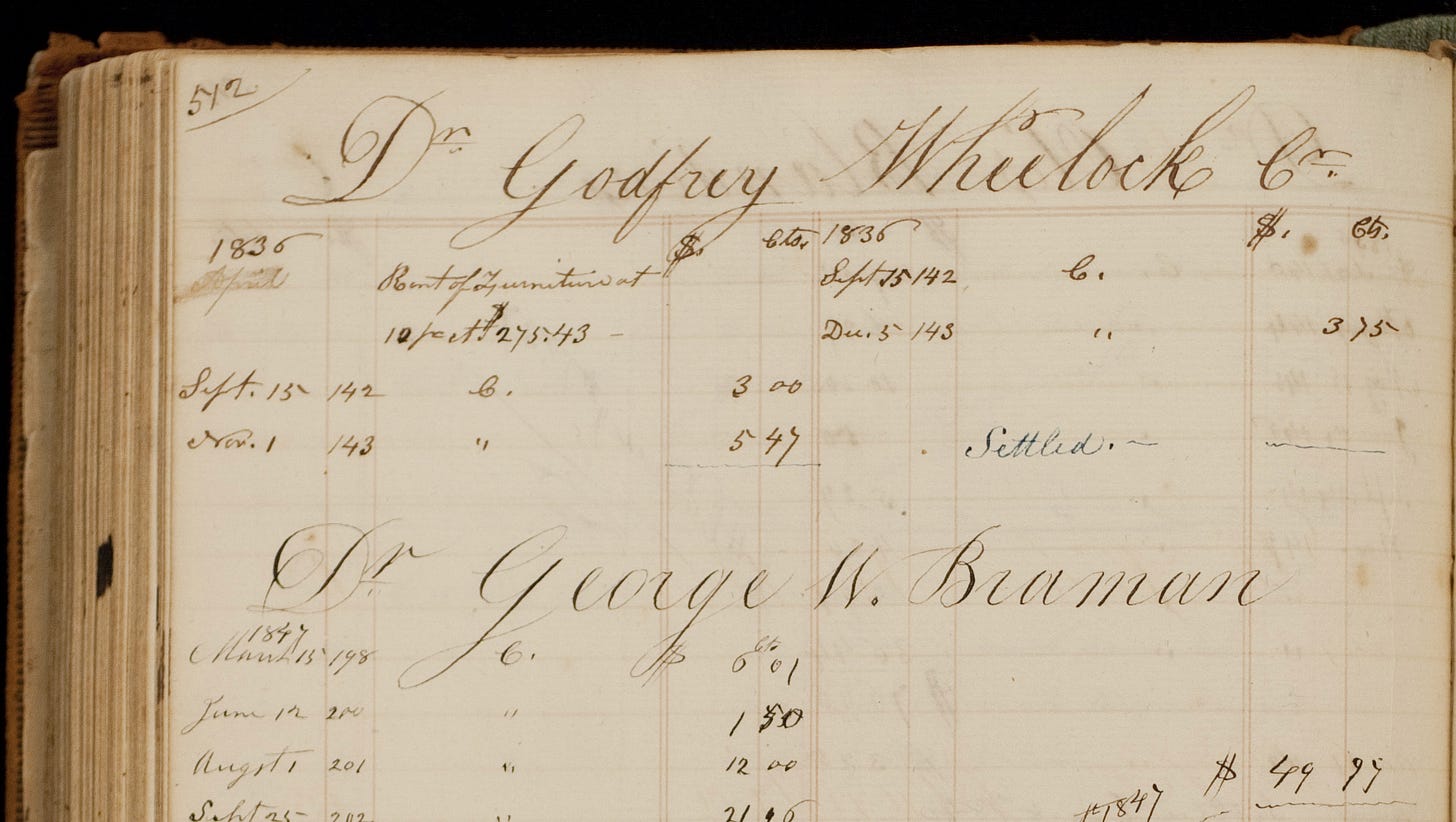 512
Dr. Godfrey Wheelock Cr.
1836 $. Cts. 1836 $. Cts.
April Rent of Furniture at Sept 15 142 C.
10 pr ct $275.43 - Dec. 5 143 " 3 75
Sept. 15 142 C. 3 00
Nov. 1 143 " 5 47 Settled.
Dr George W. Braman
1847 Cts
March 15 198 C. $ 6 01
June 12 200 " 1 50
Augst 1 201 " 12 00 $ 49 97
Sept 25 202 " 21 1847